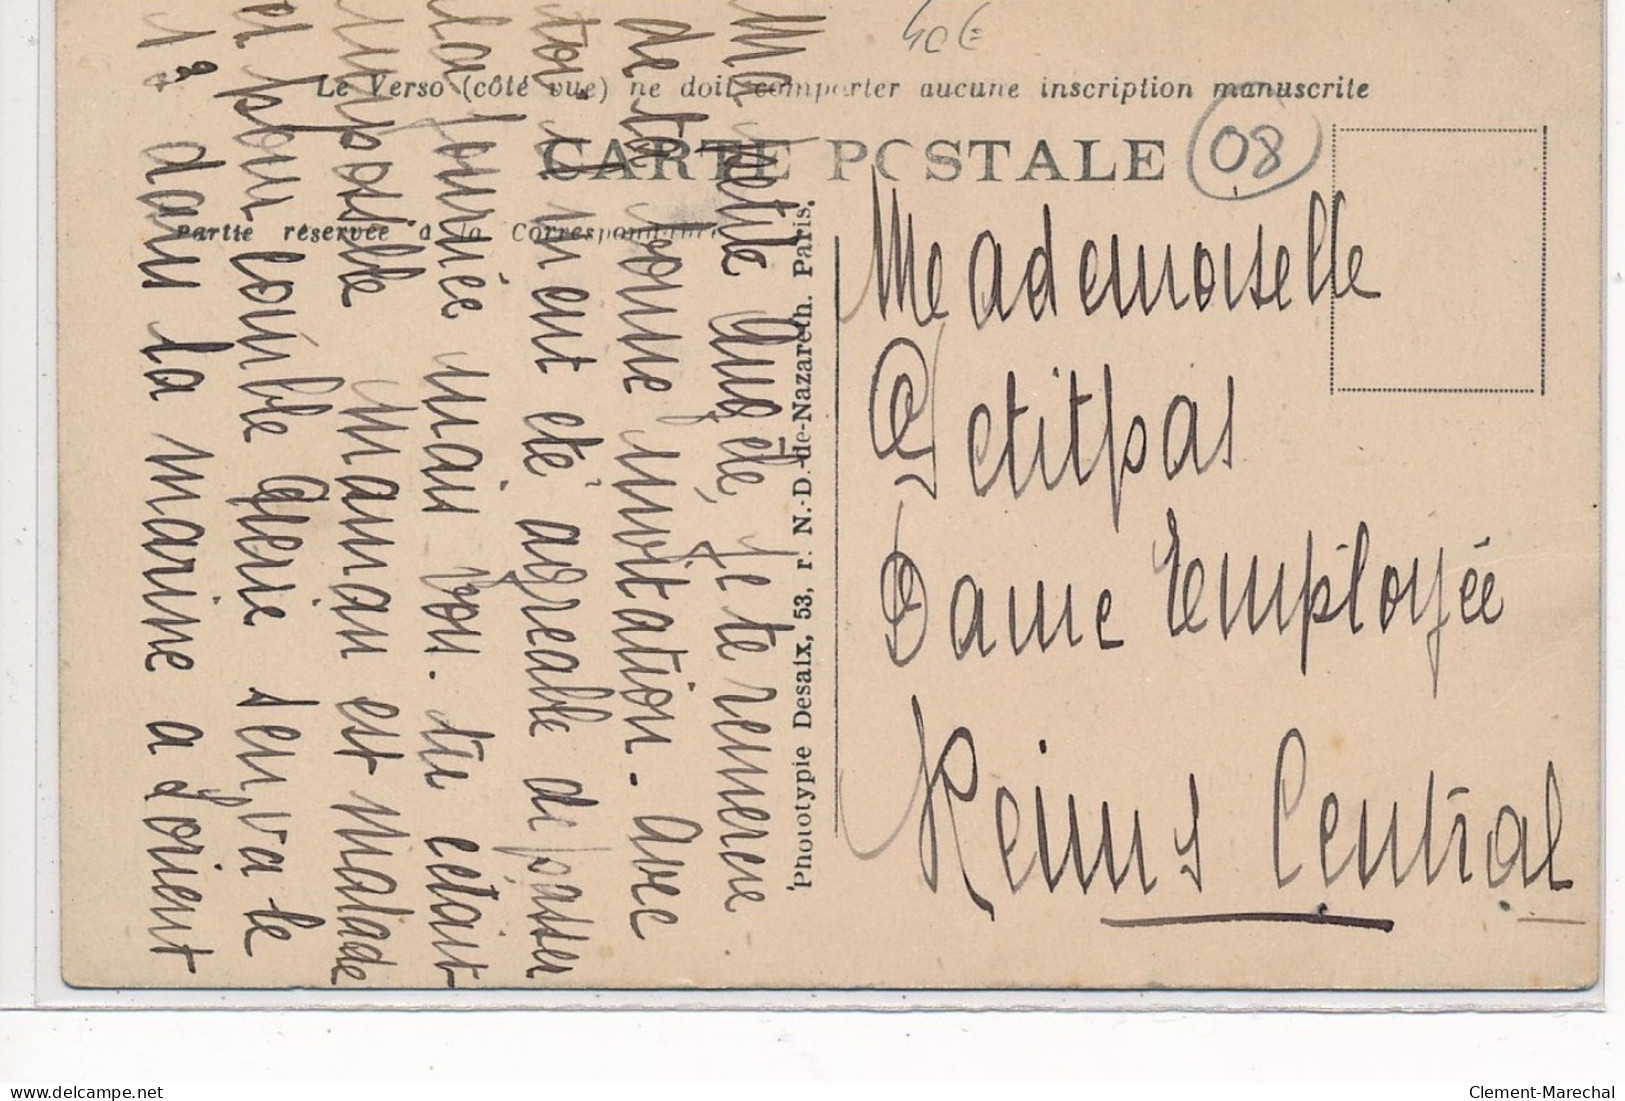 40€
Le Verso (côté vue) ne doit comporter aucune inscription manuscrite
CARTE POSTALE
08
Partie réservée à la Correspondance
Phototypie Desaix, 53, r. N.-D.-de-Nazareth. Paris.
Mademoiselle
Petitpas
Dame Employée
Reims Central
Ma petite Angèle, je te remercie
de ta bonne invitation - avec
toi m'eut été agréable de passer
la journée mais bon. tu etait
impossible maman est malade
et pour comble sen va le
1º dans la marine a Lorient
delcampe.net
Clement-Marechal